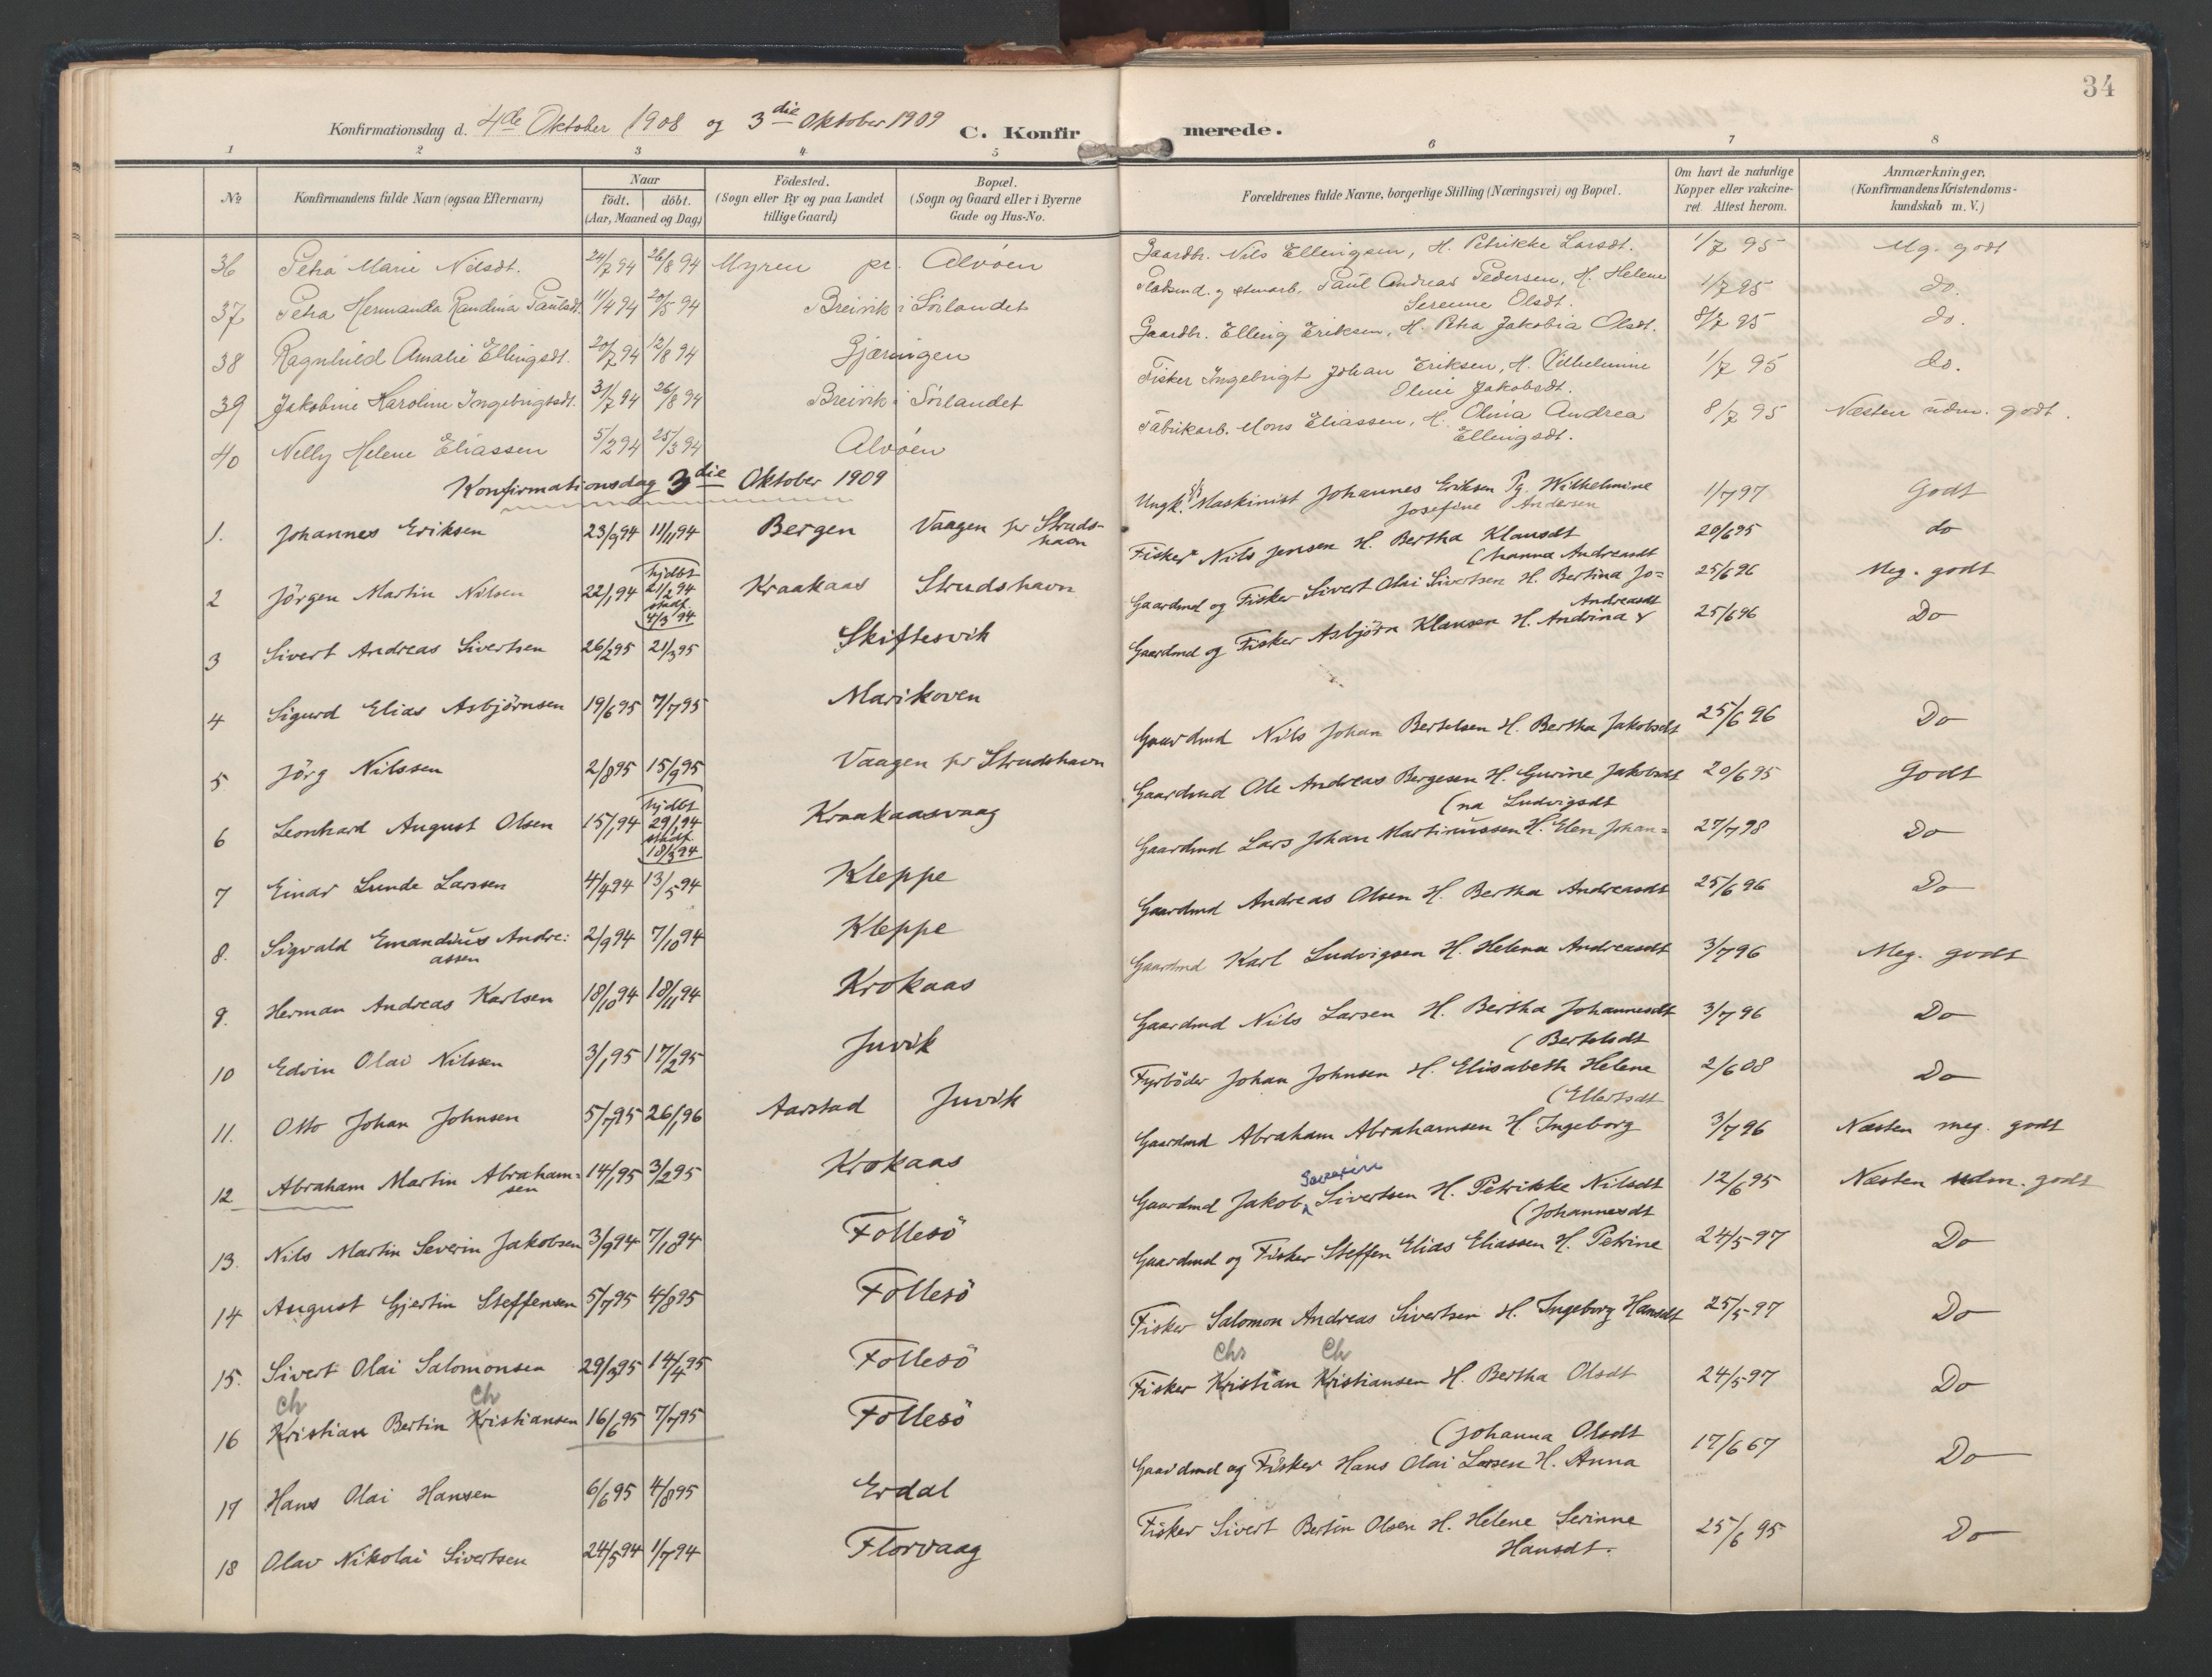 34
Konfirmationsdag d. 4de Oktober 1908 og 3die Oktober 1909 C. Konfirmerede.
1 2 3 4 5 6 7 8
No Konfirmandens fulde Navn (ogsaa Efternavn) Naar födt. döbt. (Aar, Maaned og Dag) Födested. (Sogn eller By og paa Landet tillige Gaard) Bopæl. (Sogn og Gaard eller i Byerne Gade og Hus-No. Forældrenes fulde Navne, borgerlige Stilling (Næringsvei) og Bopæl. Om havt de naturlige Kopper eller vakcineret. Attest herom. Anmærkninger. (Konfirmandens Kristendomskundskab m. V.)
36 Petra Marie Nilsdt. 24/7 94 26/8 94 Myren pr. Alvøen Gaardbr. Nils Ellingsen, H. Petrikke Larsdt. 1/7 95 Mg. godt
37 Petra Hermanda Randina Paulsdt. 11/4 94 20/5 94 Breivik i Sørlandet Pladsmd. og stenarb. Paul Andreas Pedersen, H. Helene Serenne Olsdt. 1/7 95 do.
38 Ragnhild Amalie Ellingsdt. 20/7 94 12/8 94 Gjæringen Gaardbr. Elling Eriksen, H. Petra Jakobia Olsdt. 8/7 95 do.
39 Jakobine Karoline Ingebrigtsdt. 31/7 94 26/8 94 Breivik i Sørlandet Fisker Ingebrigt Johan Eriksen, H. Vilhelmine Oline Jakobsdt. 1/7 95 do.
40 Nelly Helene Eliassen 5/2 94 25/3 94 Alvøen Fabrikarb. Mons Eliassen, H. Olina Andrea Ellingsdt. 8/7 95 Næsten udm. godt.
Konfirmationsdag 3die Oktober 1909
1. Johannes Eriksen 23/9 94 11/11 94 Bergen Vaagen pr Strudshavn Ungk. Maskinist Johannes Eriksen Pg. Wilhelmine Josefine Andersen 1/7 97 Godt
2 Jörgen Martin Nilsen 22/1 94 hjdbt 21/2 94 stadf. 4/3 94 Kraakaas Strudshavn Fisker Nils Jensen H. Bertha Klausdt 20/6 95 do
3 Sivert Andreas Sivertsen 26/2 95 21/3 95 Skiftesvik Gaardmd og Fisker Sivert Olai Sivertsen H. Bertina Jo= (hanna Andreasdt 25/6 96 Meg. godt
4 Sigurd Elias Asbjørnsen 19/6 95 7/7 95 Marikoven Gaardmd og Fisker Asbjørn Klausen H. Andrina Andreasdt 25/6 96 Do
5 Jörg Nilssen 2/8 95 15/9 95 Vaagen pr Strudshavn Gaardmd Nils Johan Bertelsen H. Bertha Jakobsdt 25/6 96 Do
6 Leonhard August Olsen 15/1 94 hjdbt 29/1 94 stadf. 18/3 94 Kraakaasvaag Gaardmd Ole Andreas Bergesen H. Gurine Jakobsdt 20/6 95 Godt
7 Einar Lunde Larssen 4/4 94 13/5 94 Kleppe Gaardmd Lars Johan Martinussen H. Elen Johan= (na Ludvigsdt 27/7 98 Do
8. Sigvald Emandius Andre: assen 2/9 94 7/10 94 Kleppe Gaardmd Andreas Olsen H. Bertha Andreasdt 25/6 96 Do
9. Herman Andreas Karlsen 18/10 94 18/11 94 Krokaas Gaardmd Karl Ludvigsen H. Helena Andreasdt 3/7 96 Meg. godt
10 Edvin Olai Nilssen 3/1 95 17/2 95 Juvik Gaardmd Nils Larsen H. Bertha Johannesdt 3/7 96 Do
11. Otto Johan Johnsen 5/7 95 26/1 96 Aarstad Juvik Fyrbøder Johan Johnsen H. Elisabeth Helene (Bertelsdt 2/6 08 Do
12 Abraham Martin Abraham= sen 14/1 95 3/2 95 Krokaas Gaardmd Abraham Abrahamsen H. Ingeborg (Ellertsdt 3/7 96 Næsten meg. godt
13. Nils Martin Severin Jakobsen 3/9 94 7/10 94 Follesö Gaardmd Jakob Severin Sivertsen H. Petrikke Nilsdt 12/6 95 Næsten udm. godt
14 August Gjertin Steffensen 5/7 95 4/8 95 Follesö Gaardmd og Fisker Steffen Elias Eliassen H. Petrine (Johannesdt 24/5 97 Do
15. Sivert Olai Salomonsen 29/3 95 14/4 95 Follesö Fisker Salomon Andreas Sivertsen H. Ingeborg Hansdt 25/5 97 Do
Ch Ch Chr Ch
16 Kristian Bertin Kristiansen 16/6 95 7/7 95 Follesö Fisker Kristian Kristiansen H. Bertha Olsdt 24/5 97 Do
17 Hans Olai Hansen 6/6 95 4/8 95 Erdal Gaardmd og Fisker Hans Olai Larsen H. Anna (Johanna Olsdt 17/6 67 Do
18 Olav Nikolai Sivertsen 24/5 94 1/7 94 Florvaag Fisker Sivert Bertin Olsen H. Helene Serinne Hansdt. 25/6 95 Do